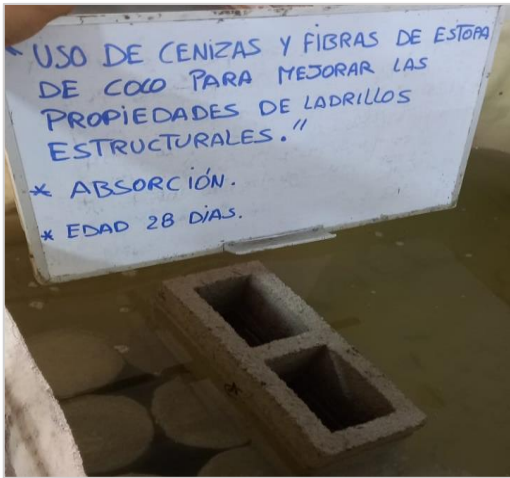 "USO DE CENIZAS Y FIBRAS DE ESTOPA
DE COCO PARA MEJORAR LAS
PROPIEDADES DE LADRILLOS
ESTRUCTURALES."
* ABSORCIÓN.
* EDAD 28 DÍAS.